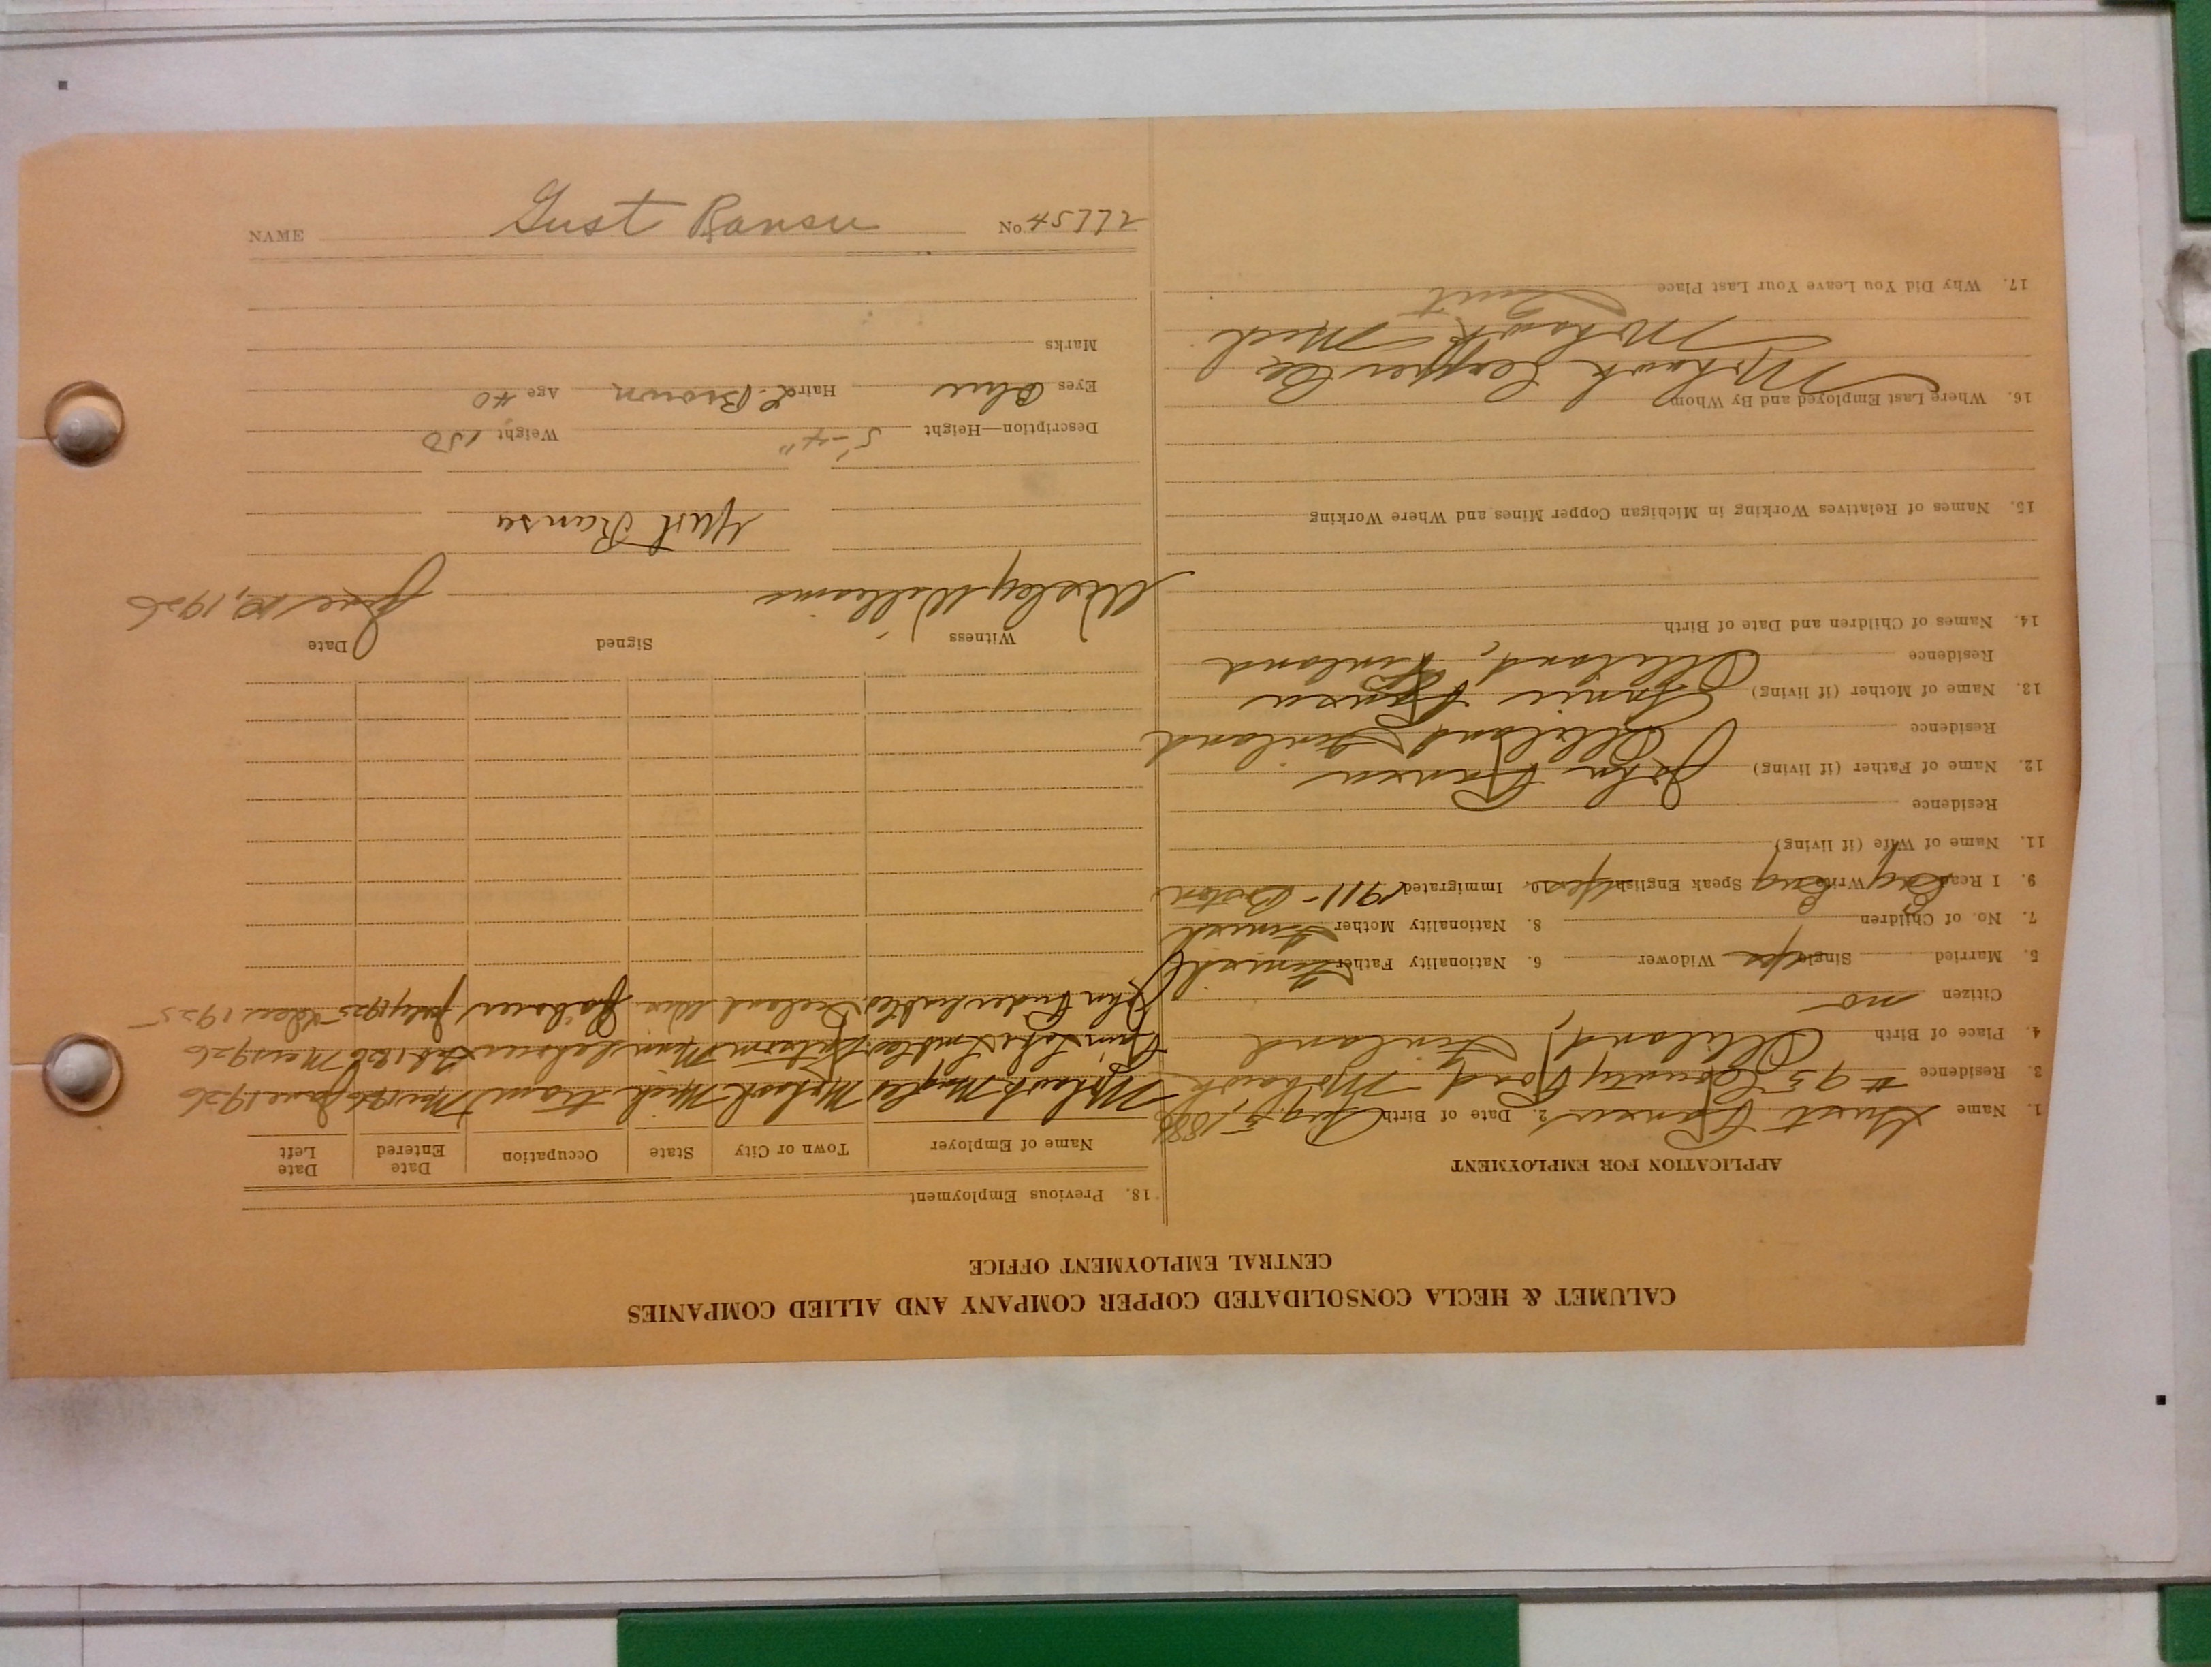 CALUMET & HECLA CONSOLIDATED COPPER COMPANY AND ALLIED COMPANIES
CENTRAL EMPLOYMENT OFFICE
APPLICATION FOR EMPLOYMENT
1. Name Gust Ransu 2. Date of Birth Aug 5, 1886
3. Residence #95 County Road Mohawk
4. Place of Birth Finland
Citizen no
5. Married Single yes Widower 6. Nationality Father Finnish
7. No. of Children 8. Nationality Mother Finnish
9. I Read Eng Write Eng Speak English yes 10. Immigrated 1911 - Boston
11. Name of Wife (if living)
Residence
12. Name of Father (if living) John Ransu
Residence Finland
13. Name of Mother (if living) Ransu
Residence Finland
14. Names of Children and Date of Birth
15. Names of Relatives Working in Michigan Copper Mines and Where Working
16. Where Last Employed and By Whom
Mohawk Copper Co
Mohawk Mich
17. Why Did You Leave Your Last Place Quit
18. Previous Employment
Name of Employer Town or City State Occupation Date Entered Date Left
Mohawk Mining Co Mohawk Mich tram Mar 1926 June 1926
Minn Laborer Feb 1926 Mar 1926
John Wis Laborer July 1925 Dec 1925
Witness Signed Date
Wesley Williams June 10, 1926
Gust Ransu
Description—Height 5'-4" Weight 150
Eyes Blue Hair d. Brown Age 40
Marks
NAME Gust Ransu No. 45772